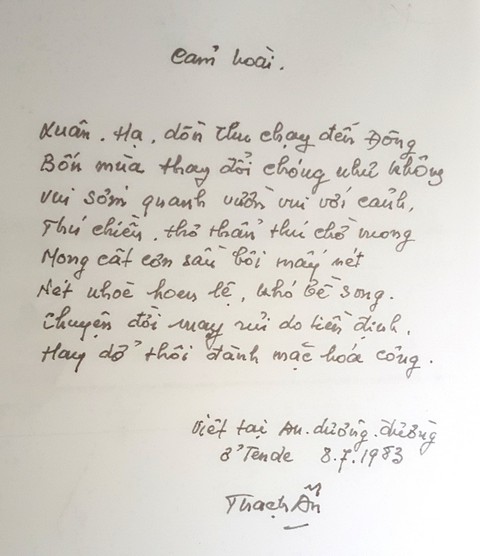 Cảm hoài.
Xuân. Hạ, dồn thu chạy đến Đông
Bốn mùa thay đổi chóng như không
Vui sớm quanh vườn vui với cảnh,
Thú chiều. thơ thẩn thú chờ mong
Mong cất cơn sầu bôi mấy nét
Nét nhoè hoen lệ, khó bề song.
Chuyện đời may rủi do tiền định,
Hay dở thôi đành mặc hoá công.
Viết tại An. dương. đường
ở Tende 8.7.1983
Thạch Ẩn